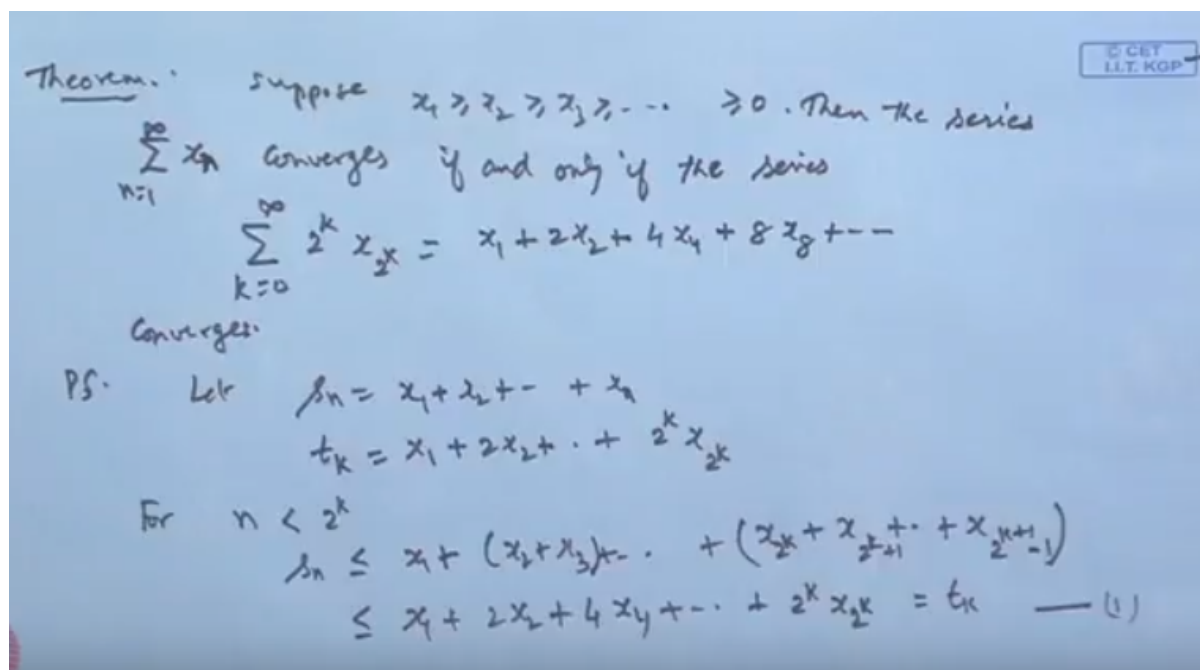 © CET
I.I.T. KGP
Theorem. Suppose x₁ ≥ x₂ ≥ x₃ ≥ --- ≥ 0. Then the series
∑_{n=1}^{∞} xₙ converges if and only if the series
∑_{k=0}^{∞} 2^k x_{2^k} = x₁ + 2x₂ + 4x₄ + 8x₈ + ---
Converges.
Pf. Let sₙ = x₁ + x₂ + -- + xₙ
t_k = x₁ + 2x₂ + . + 2^k x_{2^k}
For n < 2^k
sₙ ≤ x₁ + (x₂ + x₃) + -- + (x_{2^k} + x_{2^k+1} + .. + x_{2^{k+1}-1})
≤ x₁ + 2x₂ + 4x₄ + --- + 2^k x_{2^k} = t_k — (1)